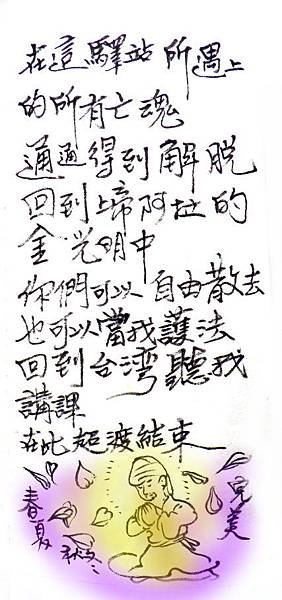 在這驛站所遇上
的所有亡魂
通通得到解脫
回到上帝阿拉的
金光明中
你們可以自由散去
也可以當我護法
回到台灣聽我
講課
在此超渡結束
春夏
秋冬
完美